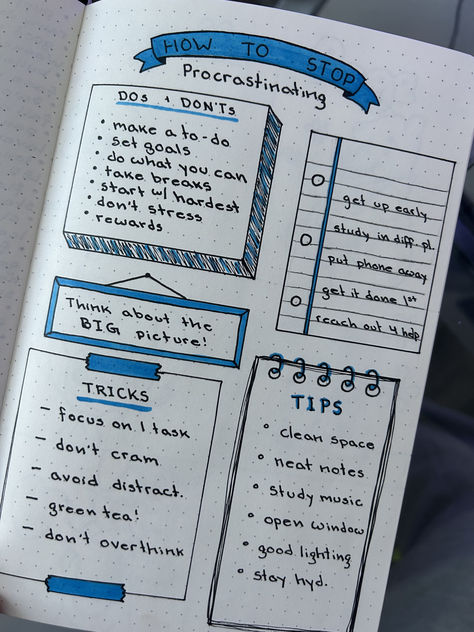 HOW TO STOP
Procrastinating
DOS + DON'TS
• make a to-do
• set goals
• do what you can
• take breaks
• start w/ hardest
• don't stress
• rewards
get up early
study in diff. pl.
put phone away
get it done 1st
reach out 4 help
Think about the
BIG picture!
TRICKS
- focus on 1 task
- don't cram
- avoid distract.
- green tea!
- don't overthink
TIPS
• clean space
• neat notes
• study music
• open window
• good lighting
• stay hyd.